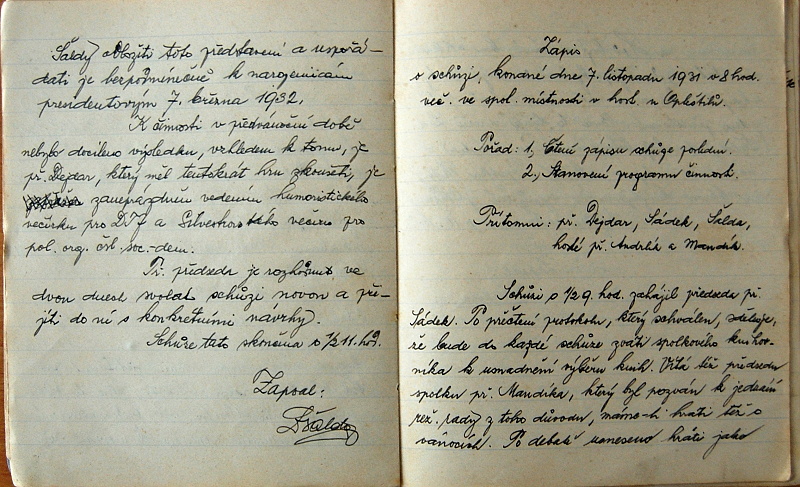 Šaldy obložiti toto představení a uspořá-
dati je bezpodmínečně k narozeninám
presidentovým 7. března 1932.
K činnosti v předvánoční době
nebylo docíleno výsledku, vzhledem k tomu, že
př. Dejdar, který měl tentokrát hru zkoušeti, je
zaneprázdněn vedením humoristického
večírku pro DTJ a Silvestrov večeru pro
pol. org. čsl. soc.-dem.
Př. předseda je rozhodnut ve
dvou dnech svolat schůzi novou a při-
jíti do ní s konkrétními návrhy.
Schůze tato skončena o 1/2 11. hod.
Zapsal:
Šalda
Zápis
o schůzi, konané dne 7. listopadu 1931 v 8 hod.
več. ve spol. místnosti v host. u Opltštilů.
Pořad: 1, Čtení zápisu schůze poslední.
2., Stanovení programu činnosti.
Přítomni: př. Dejdar, Sádek, Šalda,
hosté př. Andrlík a Mandík.
Schůzi o 1/2 9. hod. zahájil předseda př.
Sádek. Po přečtení protokolu, který schválen, sděluje,
že bude do každé schůze zváti spolkového knihov-
níka k usnadnění výběru knih. Vítá též předsedu
spolku př. Mandíka, který byl pozván k jednání
rež. rady z toho důvodu, máme-li hráti též o
vánocích. Po debatě usneseno hráti jako